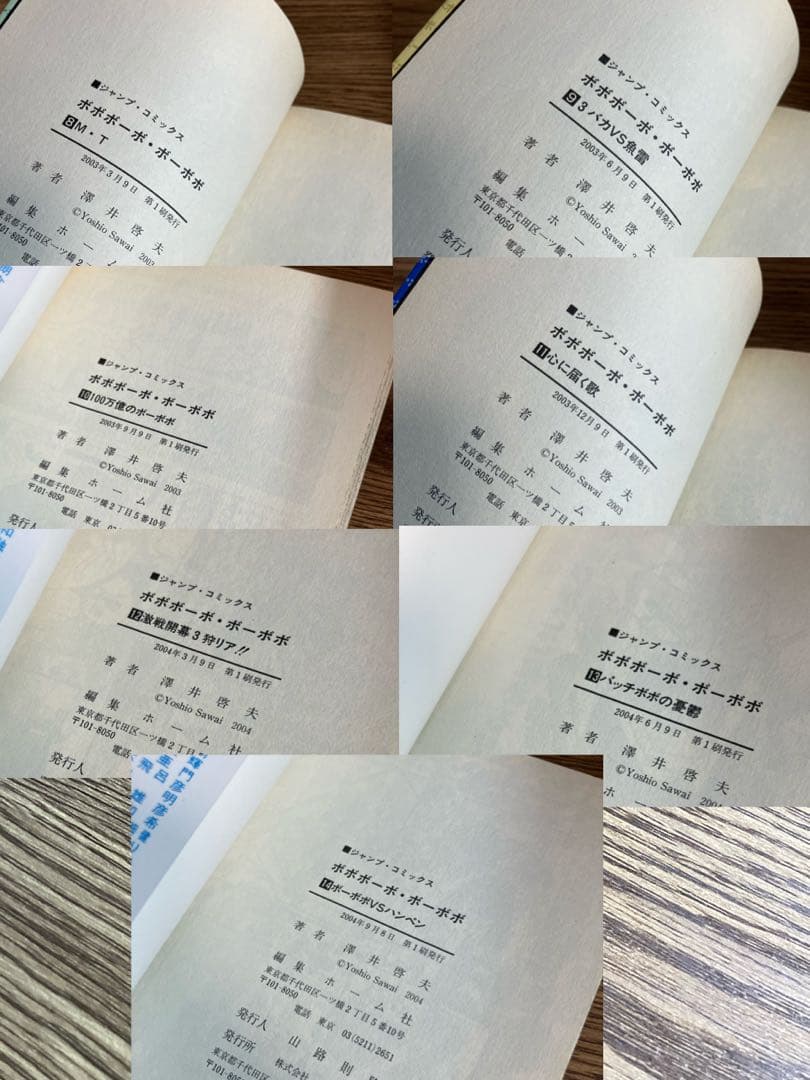 ■ジャンプ・コミックス
ボボボーボ・ボーボボ
8 M・T
2003年3月9日 第1刷発行
著者 澤井啓夫
©Yoshio Sawai 2003
編集 ホーム社
東京都千代田区一ツ橋2
〒101-8050
■ジャンプ・コミックス
ボボボーボ・ボーボボ
9 3バカVS魚雷
2003年6月9日 第1刷発行
著者 澤井啓夫
©Yoshio Sawai 2003
編集 ホーム社
東京都千代田区一ツ橋2
〒101-8050
電話
発行人
■ジャンプ・コミックス
ボボボーボ・ボーボボ
10 100万億のボーボボ
2003年9月9日 第1刷発行
著者 澤井啓夫
©Yoshio Sawai 2003
編集 ホーム社
東京都千代田区一ツ橋2丁目5番10号
〒101-8050
電話 東京
発行人
■ジャンプ・コミックス
ボボボーボ・ボーボボ
11 心に届く歌
2003年12月9日 第1刷発行
著者 澤井啓夫
©Yoshio Sawai 2003
編集 ホーム社
東京都千代田区一ツ橋2丁目5番10号
〒101-8050
電話 東京
発行人
■ジャンプ・コミックス
ボボボーボ・ボーボボ
12 激戦開幕3狩リア!!
2004年3月9日 第1刷発行
著者 澤井啓夫
©Yoshio Sawai 2004
編集 ホーム社
東京都千代田区一ツ橋2丁目5番
〒101-8050
電話
発行人
■ジャンプ・コミックス
ボボボーボ・ボーボボ
13 パッチボボの憂鬱
2004年6月9日 第1刷発行
著者 澤井啓夫
©Yoshio Sawai 2004
編集 ホーム社
■ジャンプ・コミックス
ボボボーボ・ボーボボ
14 ボーボボVSハンペン
2004年9月8日 第1刷発行
著者 澤井啓夫
©Yoshio Sawai 2004
編集 ホーム社
東京都千代田区一ツ橋2丁目5番10号
〒101-8050
電話 東京 03(5211)2651
発行人 山路則
発行所 株式会社